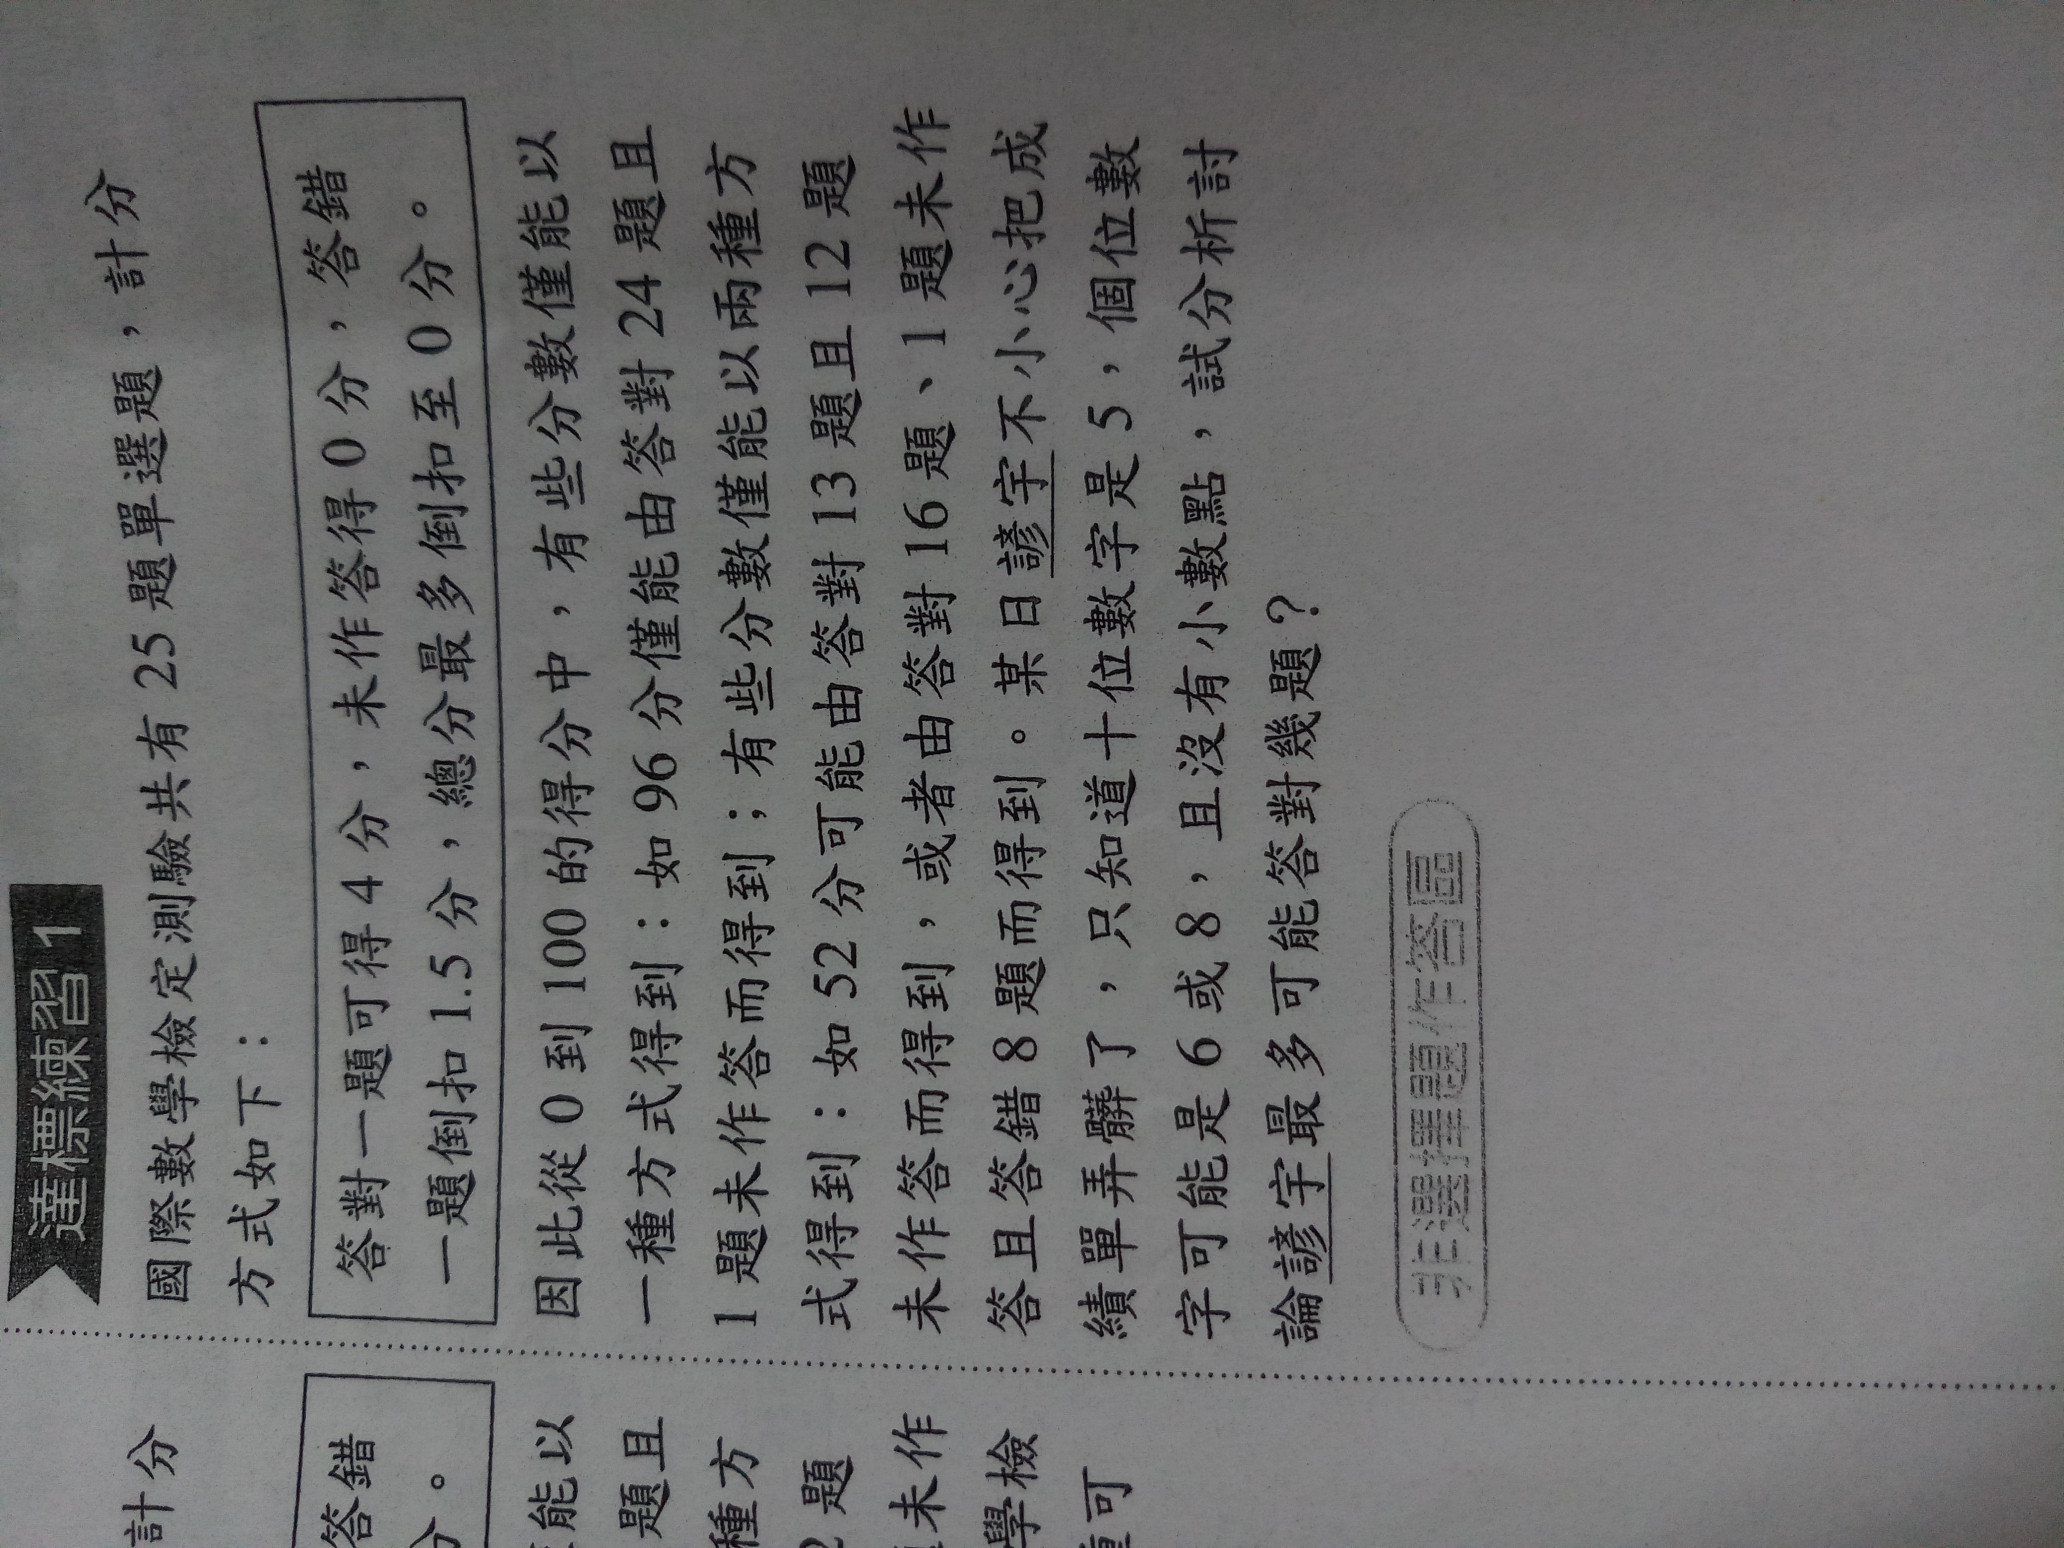 達標練習 1
國際數學檢定測驗共有 25 題單選題，計分
方式如下：
答對一題可得 4 分，未作答得 0 分，答錯
一題倒扣 1.5 分，總分最多倒扣至 0 分。
因此從 0 到 100 的得分中，有些分數僅能以
一種方式得到：如 96 分僅能由答對 24 題且
1 題未作答而得到；有些分數僅能以兩種方
式得到：如 52 分可能由答對 13 題且 12 題
未作答而得到，或者由答對 16 題、1 題未作
答且答錯 8 題而得到。某日諺宇不小心把成
績單弄髒了，只知道十位數字是 5，個位數
字可能是 6 或 8，且沒有小數點，試分析討
論諺宇最多可能答對幾題？
非選擇題作答區
計分
答錯
分。
能以
題且
種方
2 題
未作
學檢
可